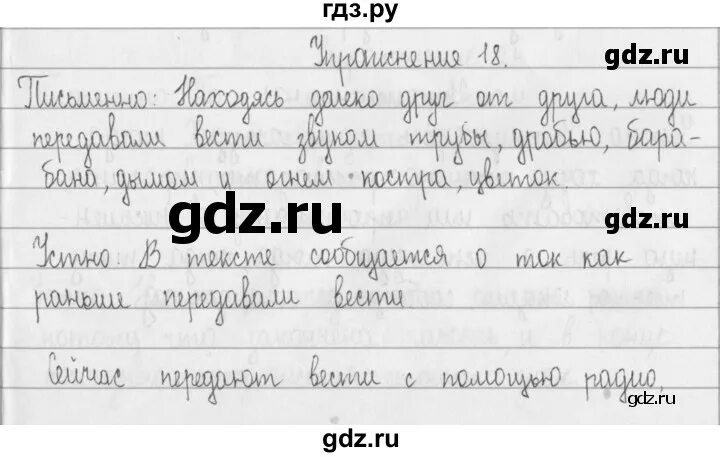 гдз.ру
Упражнение 18.
gdz.ru
Письменно: Находясь далеко друг от друга, люди
передавали вести звуком трубы, дробью, бара-
бана, дымом и огнем костра, цветок.
gdz.ru
Устно: В тексте сообщается о ток как
раньше передавали вести
Сейчас передают вести с помощью радио,
gdz.ru
gdz.ru